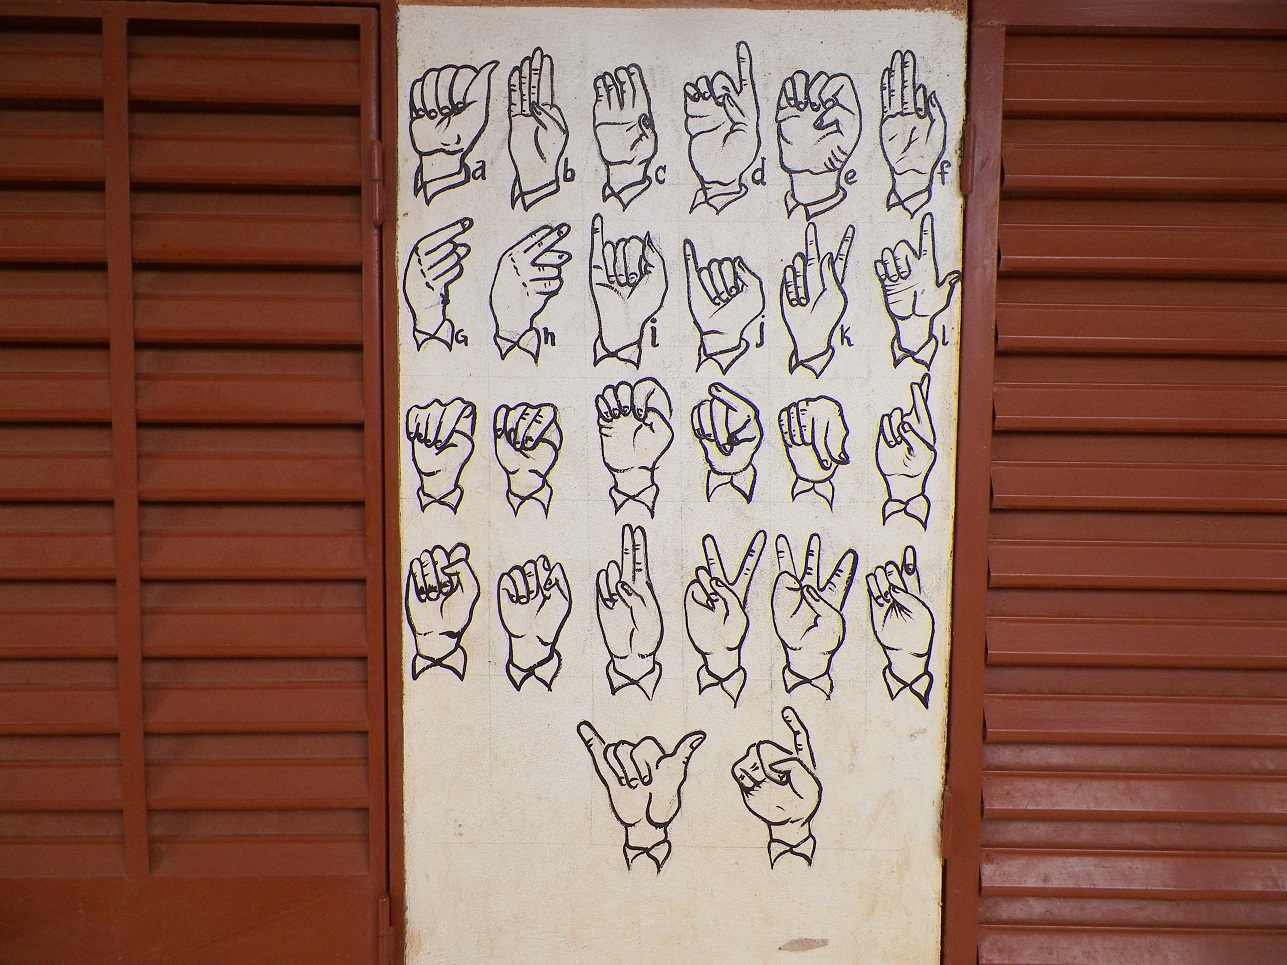 a b c d e f
G h i j k l